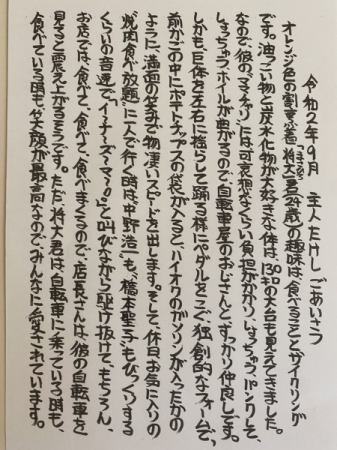 令和2年9月　主人たけし　ごあいさつ
オレンジ色の割烹着「まさひろ将大君(24歳)」の趣味は、食べることとサイクリング
です。油っこい物と炭水化物が大好きな体は、130キロの大台も見えてきました。
なので、彼の"ママチャリ"には可哀想なくらい負担がかかり、しょっちゅうパンクして、
しょっちゅうホイルが曲がるので、自転車屋のおじさんとすっかり仲良しです。
しかも、巨体を左右に揺らして踊る様にペダルをこぐ独創的なフォームで、
前かごの中にポテトチップスの袋が入ると、ハイオクのガソリンが入ったかの
ように、満面の笑みで物凄いスピードを出します。そして、休日、お気に入りの
"焼肉食べ放題"に一人で行く時は、"中野浩一"も"橋本聖子"もびっくりする
くらいの音速で、"イーチ・ズー・マー〜"と叫びながら駆け抜けて、もちろん、
お店では、食べて、食べて、食べまくるので、店長さんは、彼の自転車を
見ると震え上がるそうです。ただ、将大君は、自転車に乗っている時も、
食べている時も、笑顔が最高なので、みんなに愛されています。